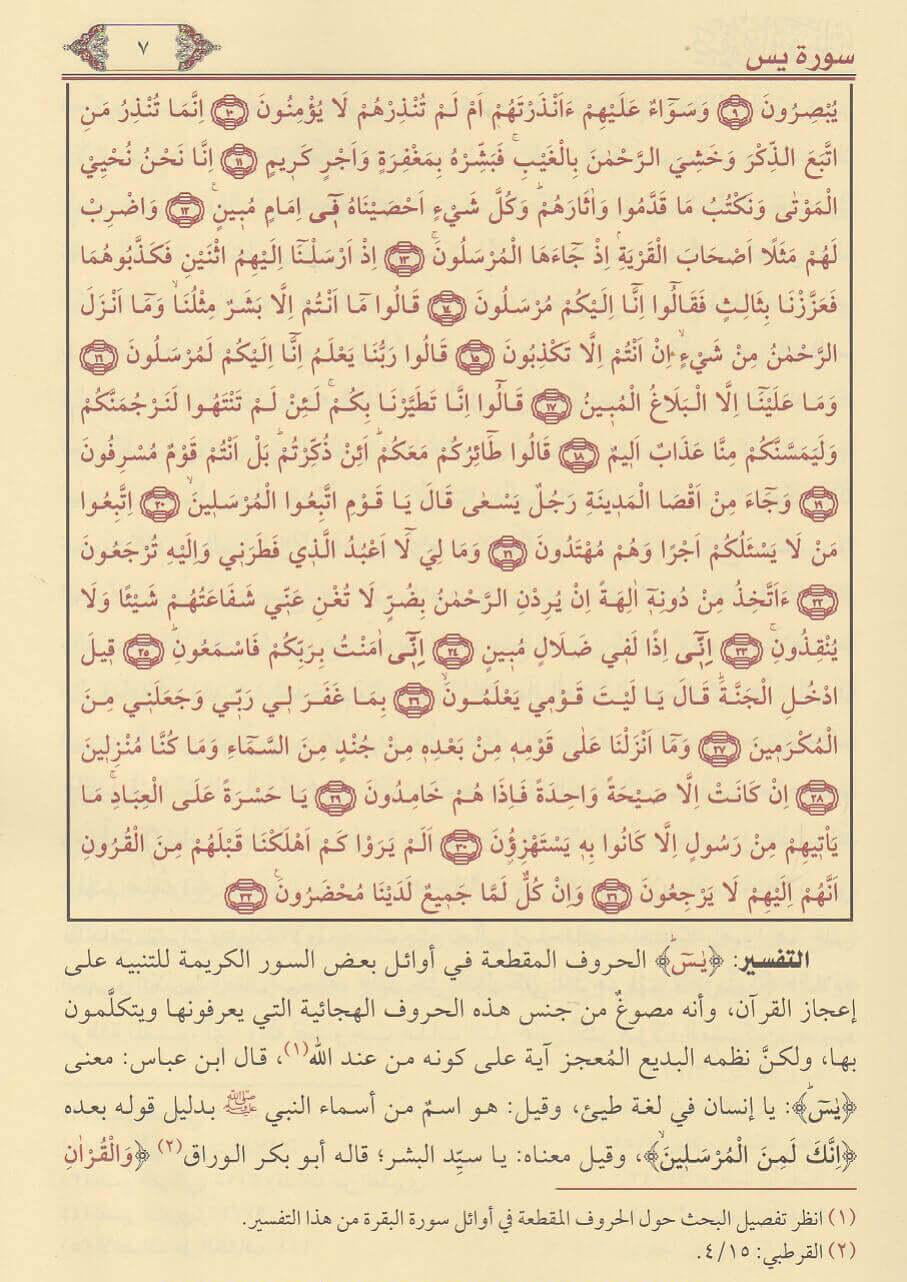 سورة يس
٧
يُبْصِرُونَ ﴿٩﴾ وَسَوَٓاءٌ عَلَيْهِمْ ءَاَنْذَرْتَهُمْ اَمْ لَمْ تُنْذِرْهُمْ لَا يُؤْمِنُونَ ﴿١٠﴾ اِنَّمَا تُنْذِرُ مَنِ
اتَّبَعَ الذِّكْرَ وَخَشِيَ الرَّحْمٰنَ بِالْغَيْبِۚ فَبَشِّرْهُ بِمَغْفِرَةٍ وَاَجْرٍ كَرِيمٍ ﴿١١﴾ اِنَّا نَحْنُ نُحْيِي
الْمَوْتٰى وَنَكْتُبُ مَا قَدَّمُوا وَاٰثَارَهُمْۜ وَكُلَّ شَيْءٍ اَحْصَيْنَاهُ فٓي اِمَامٍ مُبِينٍۚ ﴿١٢﴾ وَاضْرِبْ
لَهُمْ مَثَلًا اَصْحَابَ الْقَرْيَةِۢ اِذْ جَٓاءَهَا الْمُرْسَلُونَۚ ﴿١٣﴾ اِذْ اَرْسَلْنَٓا اِلَيْهِمُ اثْنَيْنِ فَكَذَّبُوهُمَا
فَعَزَّزْنَا بِثَالِثٍ فَقَالُٓوا اِنَّٓا اِلَيْكُمْ مُرْسَلُونَ ﴿١٤﴾ قَالُوا مَٓا اَنْتُمْ اِلَّا بَشَرٌ مِثْلُنَاۙ وَمَٓا اَنْزَلَ
الرَّحْمٰنُ مِنْ شَيْءٍۙ اِنْ اَنْتُمْ اِلَّا تَكْذِبُونَ ﴿١٥﴾ قَالُوا رَبُّنَا يَعْلَمُ اِنَّٓا اِلَيْكُمْ لَمُرْسَلُونَ ﴿١٦﴾
وَمَا عَلَيْنَٓا اِلَّا الْبَلَاغُ الْمُبِينُ ﴿١٧﴾ قَالُٓوا اِنَّا تَطَيَّرْنَا بِكُمْۚ لَئِنْ لَمْ تَنْتَهُوا لَنَرْجُمَنَّكُمْ
وَلَيَمَسَّنَّكُمْ مِنَّا عَذَابٌ اَلِيمٌ ﴿١٨﴾ قَالُوا طَٓائِرُكُمْ مَعَكُمْۜ اَئِنْ ذُكِّرْتُمْۜ بَلْ اَنْتُمْ قَوْمٌ مُسْرِفُونَ
﴿١٩﴾ وَجَٓاءَ مِنْ اَقْصَا الْمَدِينَةِ رَجُلٌ يَسْعٰى قَالَ يَا قَوْمِ اتَّبِعُوا الْمُرْسَلِينَۙ ﴿٢٠﴾ اِتَّبِعُوا
مَنْ لَا يَسْئَلُكُمْ اَجْرًا وَهُمْ مُهْتَدُونَ ﴿٢١﴾ وَمَا لِيَ لَٓا اَعْبُدُ الَّذِي فَطَرَنِي وَاِلَيْهِ تُرْجَعُونَ
﴿٢٢﴾ ءَاَتَّخِذُ مِنْ دُونِهٓ اٰلِهَةً اِنْ يُرِدْنِ الرَّحْمٰنُ بِضُرٍّ لَا تُغْنِ عَنِّي شَفَاعَتُهُمْ شَيْئًا وَلَا
يُنْقِذُونِۚ ﴿٢٣﴾ اِنّٓي اِذًا لَفِي ضَلَالٍ مُبِينٍ ﴿٢٤﴾ اِنّٓي اٰمَنْتُ بِرَبِّكُمْ فَاسْمَعُونِۜ ﴿٢٥﴾ قِيلَ
ادْخُلِ الْجَنَّةَۜ قَالَ يَا لَيْتَ قَوْمِي يَعْلَمُونَۙ ﴿٢٦﴾ بِمَا غَفَرَ لِي رَبِّي وَجَعَلَنِي مِنَ
الْمُكْرَمِينَ ﴿٢٧﴾ وَمَٓا اَنْزَلْنَا عَلٰى قَوْمِهِ مِنْ بَعْدِهِ مِنْ جُنْدٍ مِنَ السَّمَٓاءِ وَمَا كُنَّا مُنْزِلِينَ
﴿٢٨﴾ اِنْ كَانَتْ اِلَّا صَيْحَةً وَاحِدَةً فَاِذَا هُمْ خَامِدُونَ ﴿٢٩﴾ يَا حَسْرَةً عَلَى الْعِبَادِۚ مَا
يَأْتِيهِمْ مِنْ رَسُولٍ اِلَّا كَانُوا بِهِ يَسْتَهْزِؤُنَ ﴿٣٠﴾ اَلَمْ يَرَوْا كَمْ اَهْلَكْنَا قَبْلَهُمْ مِنَ الْقُرُونِ
اَنَّهُمْ اِلَيْهِمْ لَا يَرْجِعُونَ ﴿٣١﴾ وَاِنْ كُلٌّ لَمَّا جَمِيعٌ لَدَيْنَا مُحْضَرُونَۚ ﴿٣٢﴾
التفسير: ﴿يٰسٓۜ﴾ الحروف المقطعة في أوائل بعض السور الكريمة للتنبيه على
إعجاز القرآن، وأنه مصوغٌ من جنس هذه الحروف الهجائية التي يعرفونها ويتكلَّمون
بها، ولكنَّ نظمه البديع المُعجز آية على كونه من عند الله(١)، قال ابن عباس: معنى
﴿يٰسٓۜ﴾: يا إنسان في لغة طيئ، وقيل: هو اسمٌ من أسماء النبي ﷺ بدليل قوله بعده
﴿اِنَّكَ لَمِنَ الْمُرْسَلِينَۙ﴾، وقيل معناه: يا سيِّد البشر؛ قاله أبو بكر الوراق(٢) ﴿وَالْقُرْاٰنِ
(١) انظر تفصيل البحث حول الحروف المقطعة في أوائل سورة البقرة من هذا التفسير.
(٢) القرطبي: ٤/١٥.